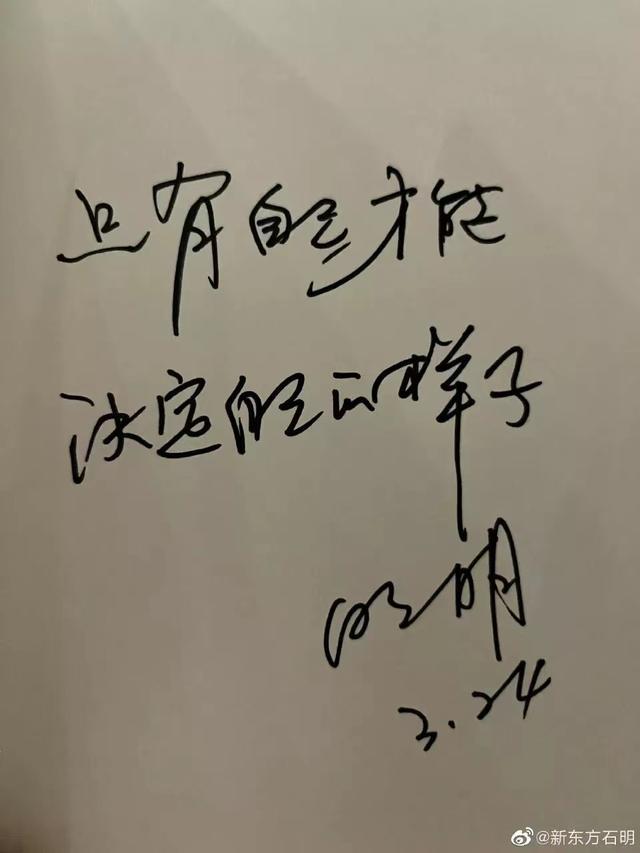 只有自己才能
决定自己的样子
石明
3.24
@新东方石明